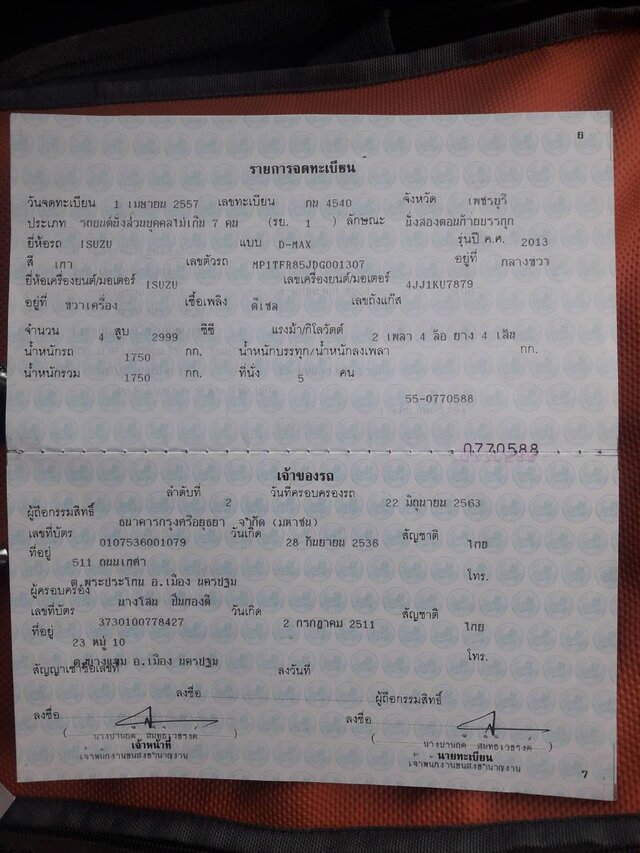 6
รายการจดทะเบียน
วันจดทะเบียน 1 เมษายน 2557 เลขทะเบียน กน 4540 จังหวัด เพชรบุรี
ประเภท รถยนต์นั่งส่วนบุคคลไม่เกิน 7 คน (รย. 1 ) ลักษณะ นั่งสองตอนท้ายบรรทุก
ยี่ห้อรถ ISUZU แบบ D-MAX รุ่นปี ค.ศ. 2013
สี เทา เลขตัวรถ MP1TFR85JDG001307 อยู่ที่ กลางขวา
ยี่ห้อเครื่องยนต์/มอเตอร์ ISUZU เลขเครื่องยนต์/มอเตอร์ 4JJ1KU7879
อยู่ที่ ขวาเครื่อง เชื้อเพลิง ดีเซล เลขถังแก๊ส
จำนวน 4 สูบ 2999 ซีซี แรงม้า/กิโลวัตต์ 2 เพลา 4 ล้อ ยาง 4 เส้น
น้ำหนักรถ 1750 กก. น้ำหนักบรรทุก/น้ำหนักลงเพลา กก.
น้ำหนักรวม 1750 กก. ที่นั่ง 5 คน
55-0770588
0770588
เจ้าของรถ
ลำดับที่ 2 วันที่ครอบครองรถ 22 มิถุนายน 2563
ผู้ถือกรรมสิทธิ์ ธนาคารกรุงศรีอยุธยา จำกัด (มหาชน)
เลขที่บัตร 0107536001079 วันเกิด 28 กันยายน 2536 สัญชาติ ไทย
ที่อยู่ 511 ถนนเทศา
ต.พระประโทน อ.เมือง นครปฐม โทร.
ผู้ครอบครอง นางโสน ปิ่นทองดี
เลขที่บัตร 3730100778427 วันเกิด 2 กรกฎาคม 2511 สัญชาติ ไทย
ที่อยู่ 23 หมู่ 10
ต.บางแขม อ.เมือง นครปฐม โทร.
สัญญาเช่าซื้อเลขที่ ลงวันที่
ลงชื่อ ผู้ถือกรรมสิทธิ์
ลงชื่อ ลงชื่อ
เจ้าหน้าที่ นายทะเบียน
เจ้าพนักงานขนส่งชำนาญงาน เจ้าพนักงานขนส่งชำนาญงาน
7